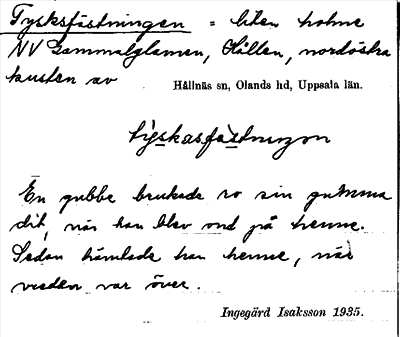 Tysksfästningen = liten holme
NV Gammalglamen, Hållen, nordöstra
kusten av Hållnäs sn, Olands hd, Uppsala län.
tyskasfästningon
En gubbe brukade ro sin gumma
dit, när han blev ond på henne.
Sedan hämtade han henne, när
vreden var över.
Ingegärd Isaksson 1935.